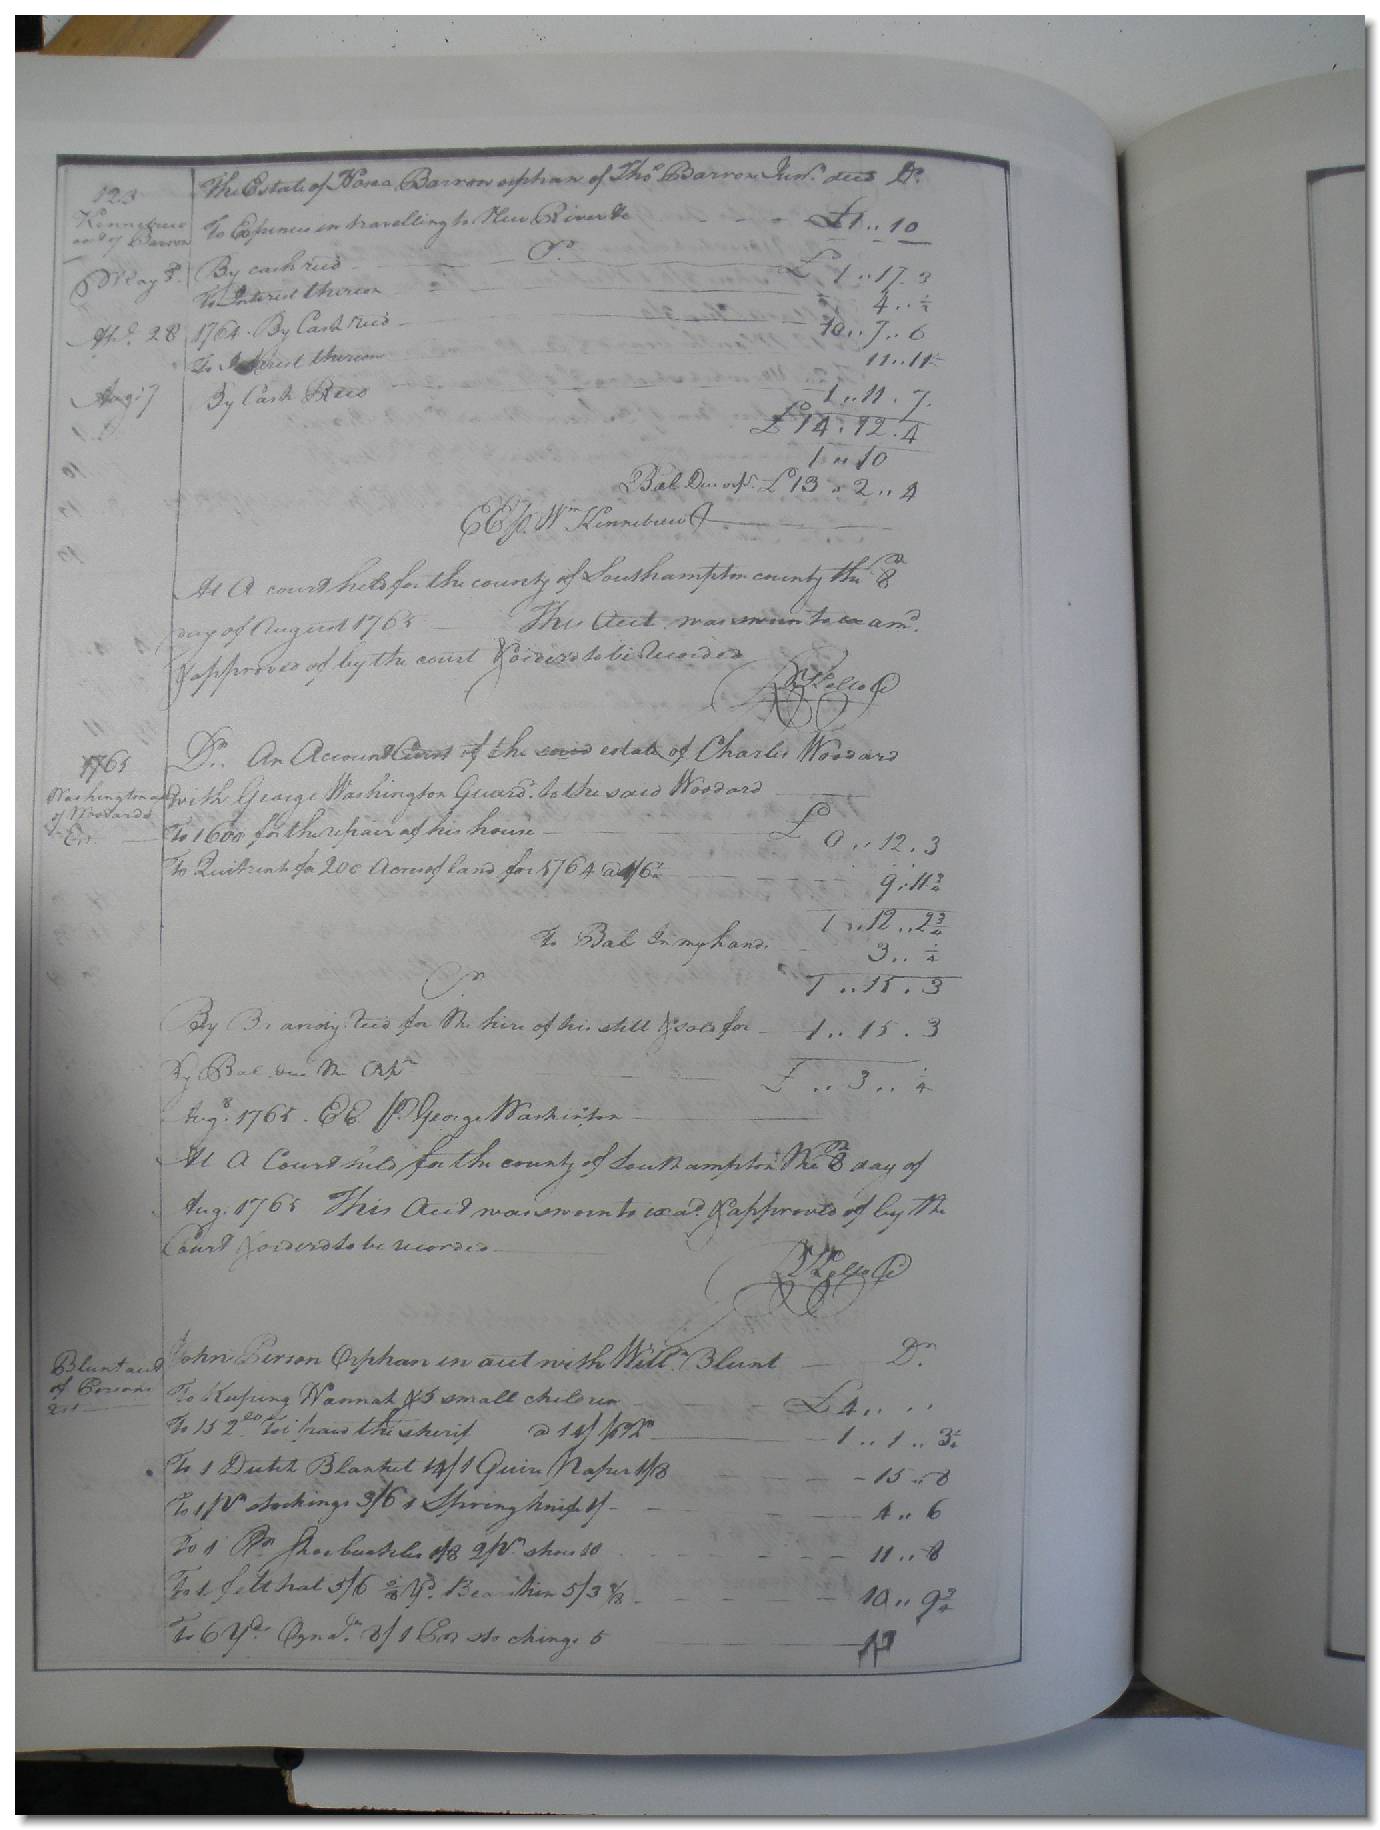 123
The Estate of Hosea Barron orphan of Tho.s Barron Jun.r decd Dr.
Kennebrew
acct of Barron
To Expences in travelling to New River &c £1 .. 10
Cr.
May By cash recd £ 1 .. 17 . 3
To Interest thereon 4 .. ½
28 1764 . By Cash recd 10 .. 7 .. 6
To Interest thereon 11 .. 11
Aug: 7 By Cash Recd 1 .. 11 . 7.
£14 . 12 . 4
1 .. 10
Bal. Due £13 .. 2 .. 4
EE p. Wm Kennebrew
At A court held for the county of Southampton county the 8
day of August 1765 This Acct. was sworn to ex amd.
& approved of by the court & orderd to be Recorded
1765
Dr. An Account Curt of the said estate of Charles Woodard
Washington
of Woodards
Est.
with George Washington Guard. to the said Woodard
To 1600 for the repair of his house £ 0 .. 12 . 3
To Quitrents for 200 Acres of land for 1764
1 .. 12 .. 2¾
To Bal. In my hand. 3 .. ¼
1 .. 15 . 3
Cr
By Brandy Recd for the hire of his still & sold for 1 .. 15 . 3
By Bal. due the £ .. 3 .. ¼
Aug. 8 1765 . EE p. George Washinton
At A Court held for the county of Southampton the 8 day of
Aug. 1765 This Acct was sworn to exad. & approved of by the
Court & orderd to be recorded
Blunt acct
of Persons
Est
John Person Orphan in acct with Will.m Blunt Dr.
To Keeping Hannah & 5 small children £4 .. . .
To 152 paid the sherif 1 .. 1 .. 3
To 1 Dutch Blanket 14/ 1 Quire Paper 1/8 - 15 .. 8
To 1 pr stockings 3/6 1 Spring knife 1/ - 4 .. 6
To 1 Pr Shoe buckles 1/8 2 pr. shoes 10 11 .. 8
To 1 felt hat 5/6 Yd. Bearskin 5/3 10 .. 9¾
To 6 Yds. 8/ 1 stockings 5